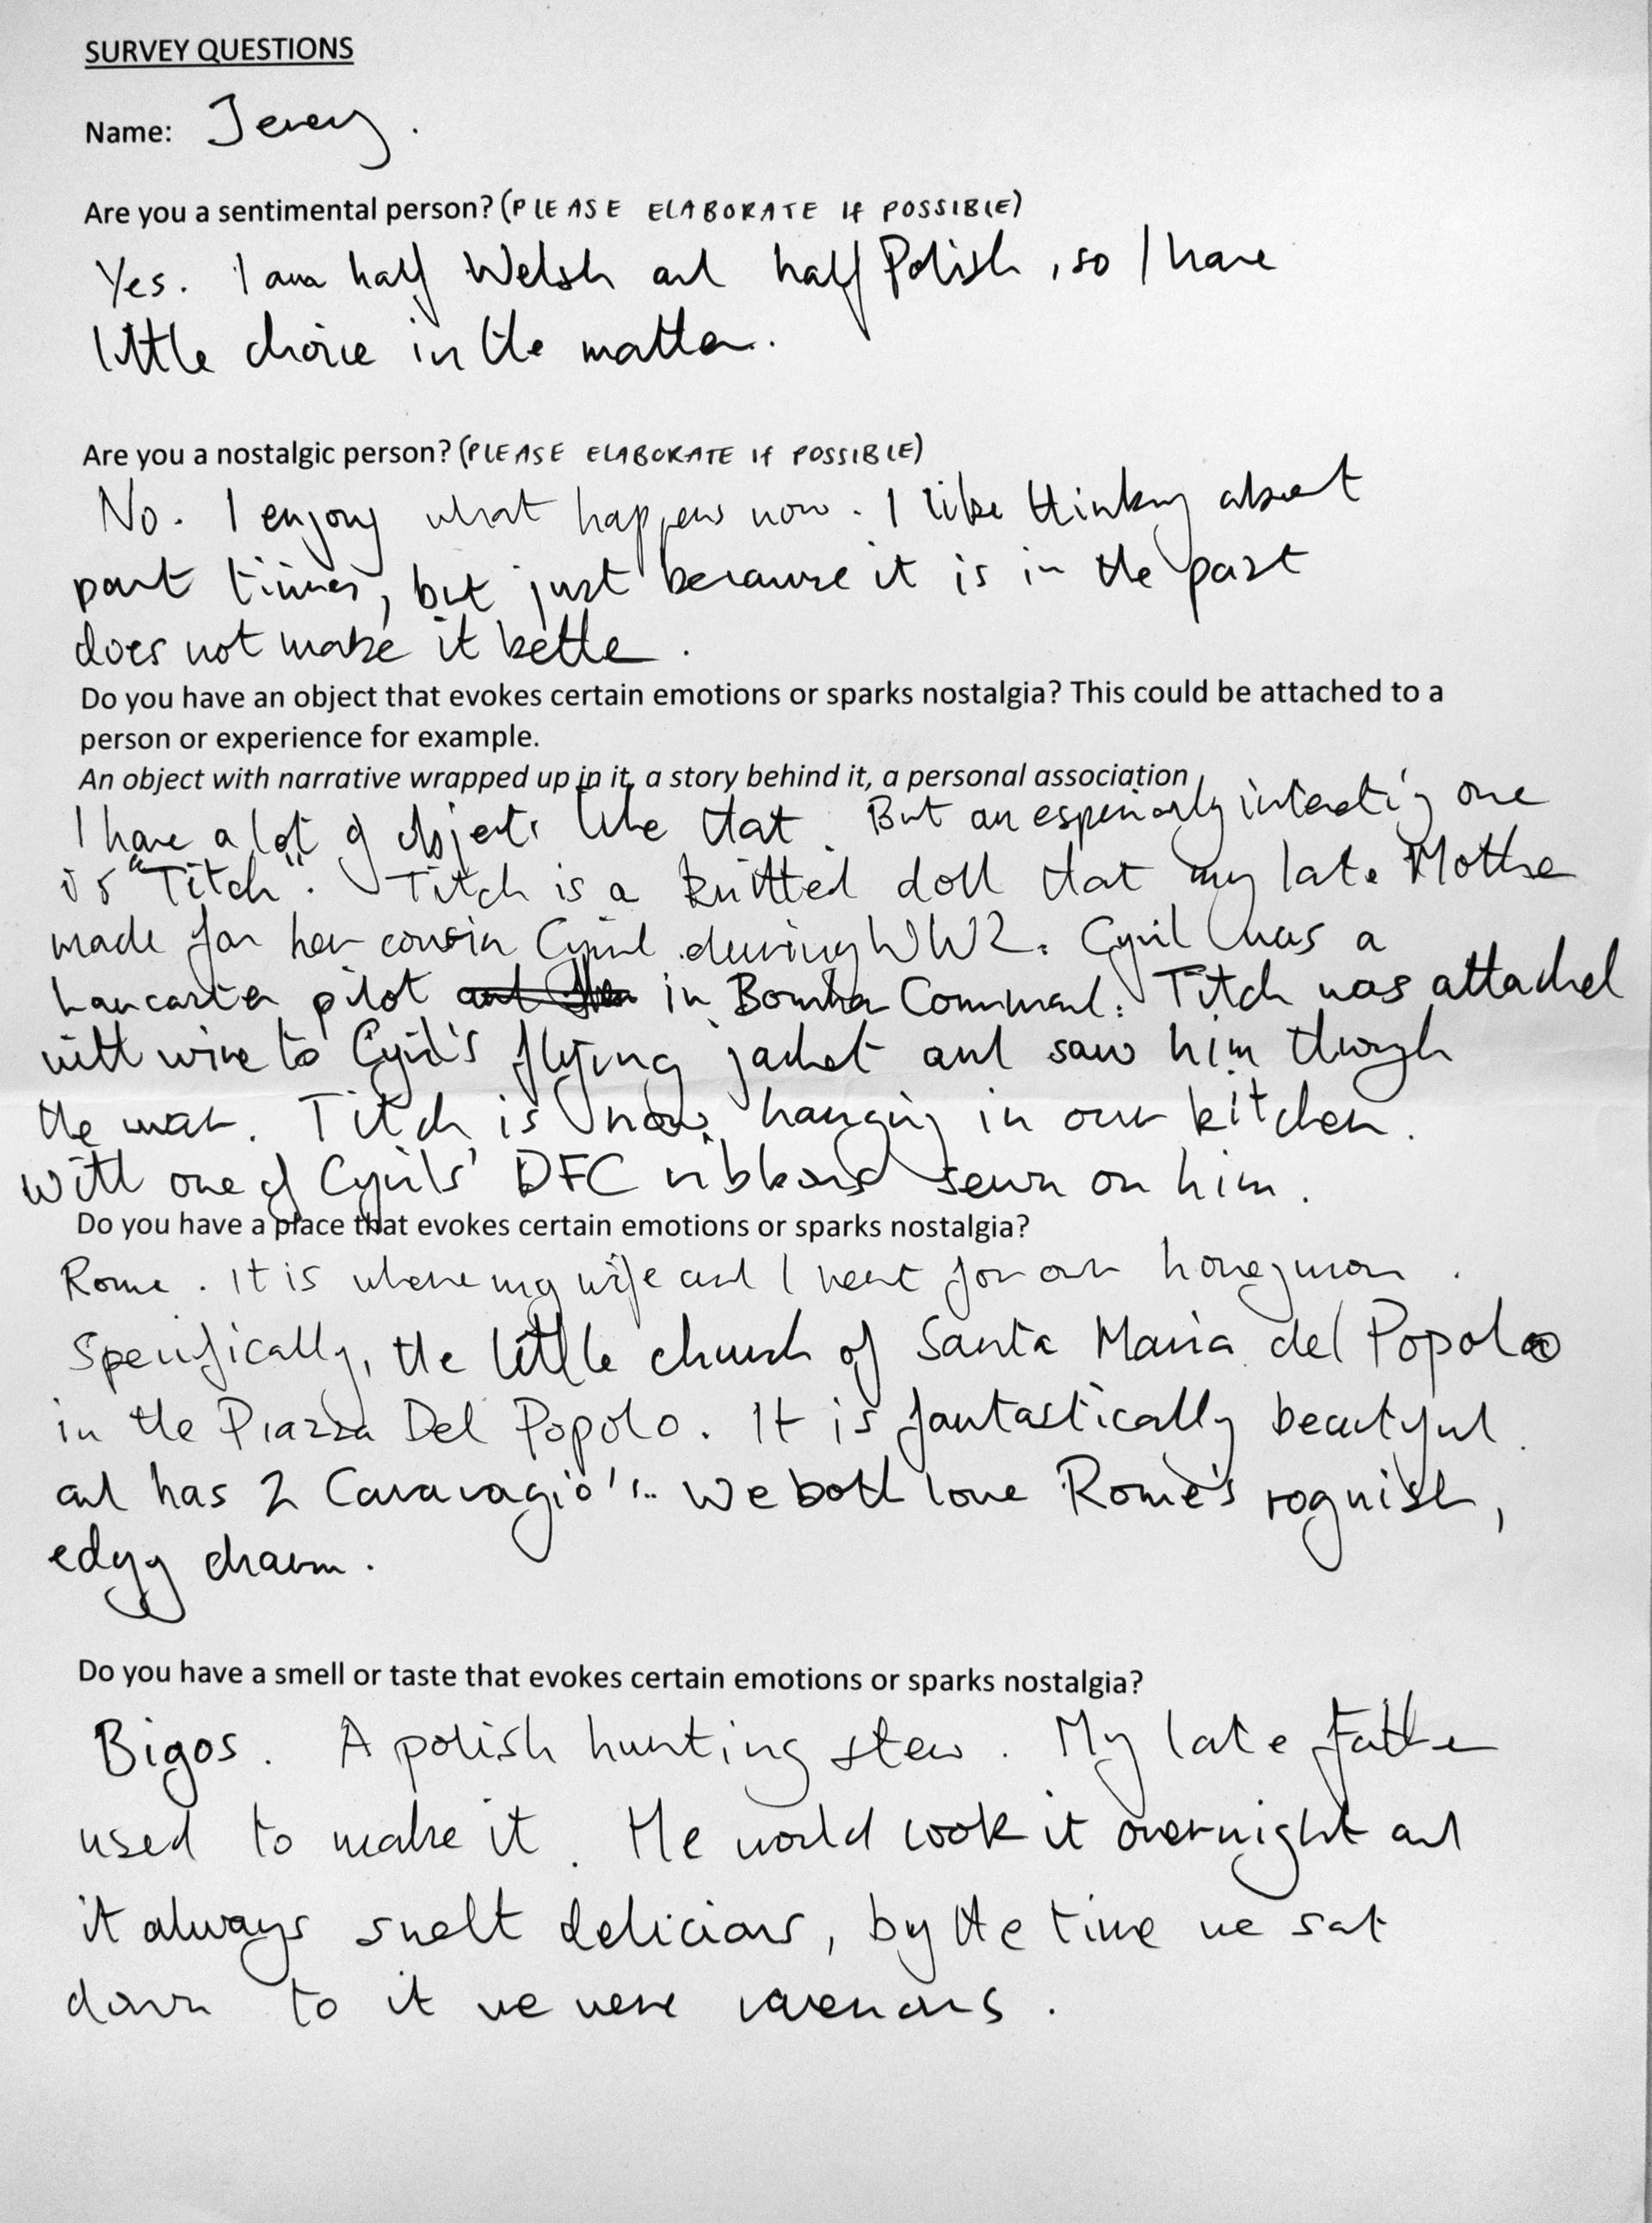 SURVEY QUESTIONS
Name: Jerzy.
Are you a sentimental person? (PLEASE ELABORATE IF POSSIBLE)
Yes. I am half Welsh and half Polish, so I have
little choice in the matter.
Are you a nostalgic person? (PLEASE ELABORATE IF POSSIBLE)
No. I enjoy what happens now. I like thinking about
past times, but just because it is in the past
does not make it better.
Do you have an object that evokes certain emotions or sparks nostalgia? This could be attached to a
person or experience for example.
An object with narrative wrapped up in it, a story behind it, a personal association
I have a lot of objects like that. But an especially interesting one
is "Titch". Titch is a knitted doll that my late Mother
made for her cousin Cyril during WW2. Cyril was a
Lancaster pilot in Bomber Command. Titch was attached
with wire to Cyril's flying jacket and saw him through
the war. Titch is now hanging in our kitchen.
With one of Cyrils' DFC ribbons sewn on him.
Do you have a place that evokes certain emotions or sparks nostalgia?
Rome. It is where my wife and I went for our honeymoon.
Specifically, the little church of Santa Maria del Popolo
in the Piazza Del Popolo. It is fantastically beautiful
and has 2 Caravagio's.. We both love Rome's roguish,
edgy charm.
Do you have a smell or taste that evokes certain emotions or sparks nostalgia?
Bigos. A polish hunting stew. My late Father
used to make it. He would cook it overnight and
it always smelt delicious, by the time we sat
down to it we were ravenous.